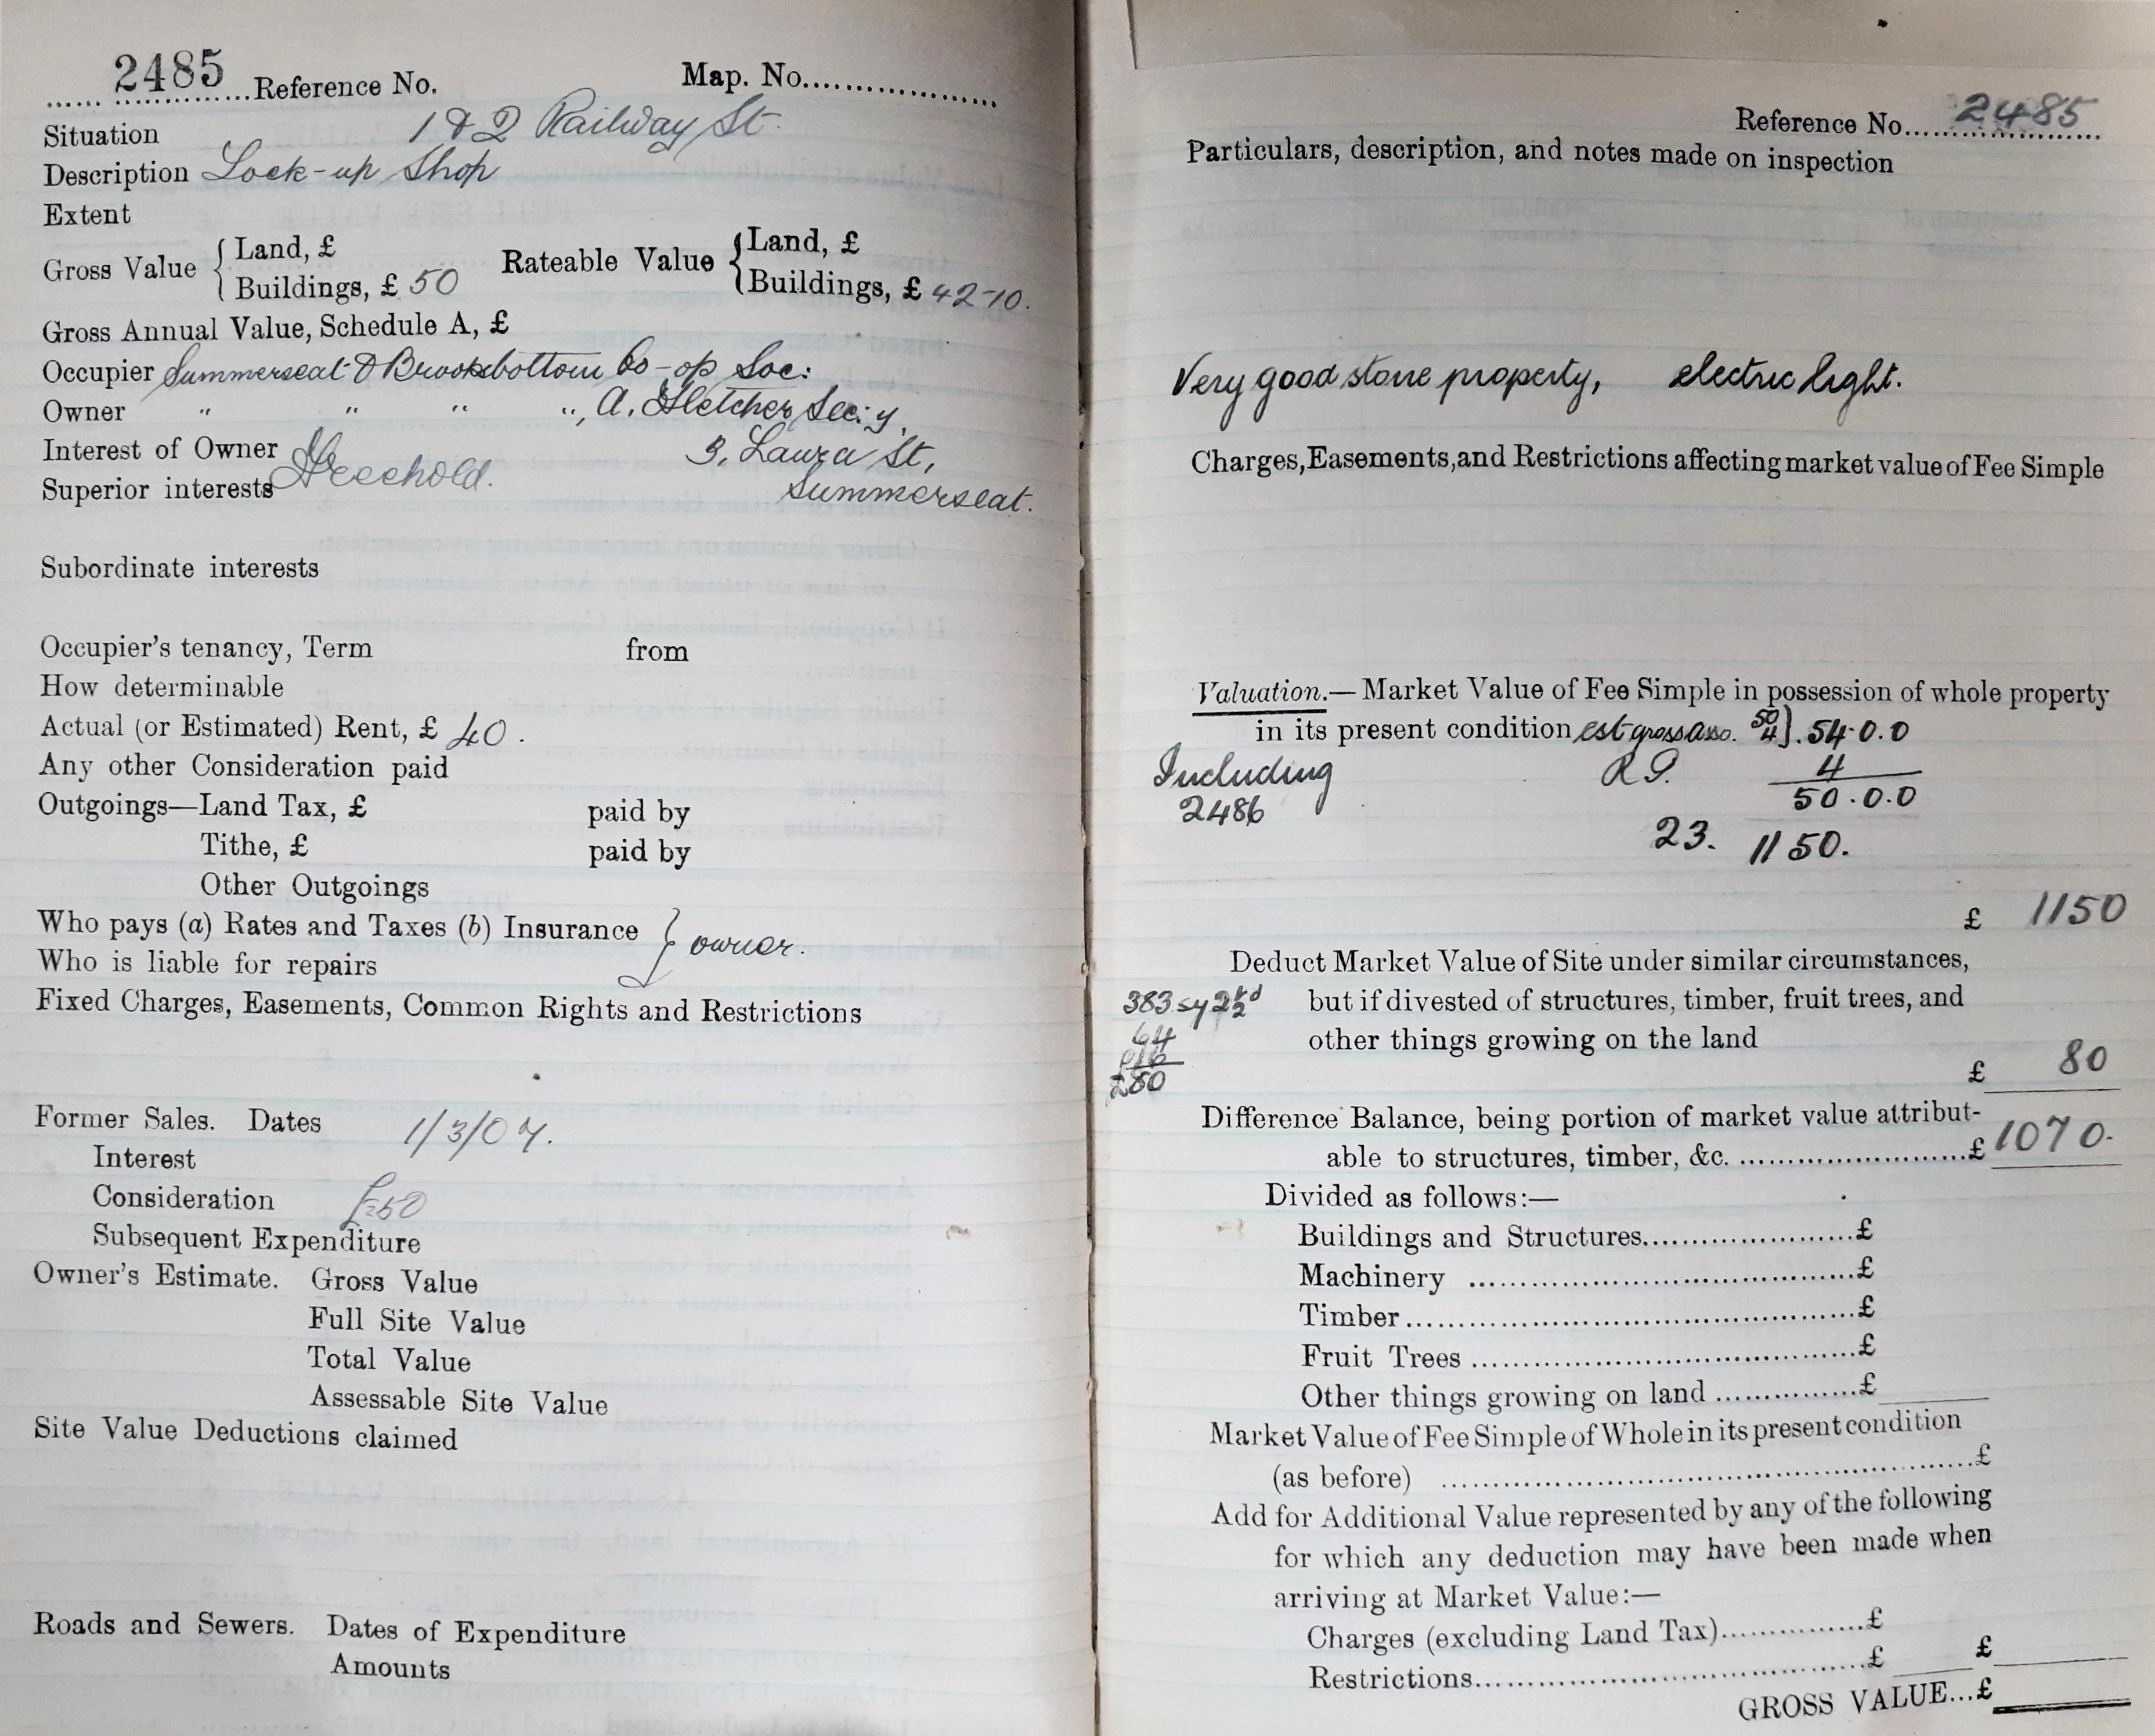 2485 Reference No. Map. No.
Situation 1 & 2 Railway St.
Description Lock-up Shop
Extent
Gross Value { Land, £ Rateable Value { Land, £
Buildings, £ 50 Buildings, £ 42-10.
Gross Annual Value, Schedule A, £
Occupier Summerseat & Brooksbottom Co-op Soc:
Owner " " " ", A. Fletcher Sec:y.
Interest of Owner 3, Laura St,
Superior interests Freehold. Summerseat.
Subordinate interests
Occupier's tenancy, Term from
How determinable
Actual (or Estimated) Rent, £ 40.
Any other Consideration paid
Outgoings—Land Tax, £ paid by
Tithe, £ paid by
Other Outgoings
Who pays (a) Rates and Taxes (b) Insurance } owner.
Who is liable for repairs
Fixed Charges, Easements, Common Rights and Restrictions
Former Sales. Dates 1/3/04.
Interest
Consideration £50
Subsequent Expenditure
Owner's Estimate. Gross Value
Full Site Value
Total Value
Assessable Site Value
Site Value Deductions claimed
Roads and Sewers. Dates of Expenditure
Amounts
Reference No. 2485
Particulars, description, and notes made on inspection
Very good stone property, electric light.
Charges, Easements, and Restrictions affecting market value of Fee Simple
Valuation.— Market Value of Fee Simple in possession of whole property
in its present condition est gross ass. 50 4 } . 54.0.0
Including 4
2486 50.0.0
23. 1150.
£ 1150
Deduct Market Value of Site under similar circumstances,
383 sy but if divested of structures, timber, fruit trees, and
64 other things growing on the land
£80 £ 80
Difference Balance, being portion of market value attribut-
able to structures, timber, &c. £ 1070.
Divided as follows:—
Buildings and Structures £
Machinery £
Timber £
Fruit Trees £
Other things growing on land £
Market Value of Fee Simple of Whole in its present condition
(as before) £
Add for Additional Value represented by any of the following
for which any deduction may have been made when
arriving at Market Value:—
Charges (excluding Land Tax) £
Restrictions £ £
GROSS VALUE...£